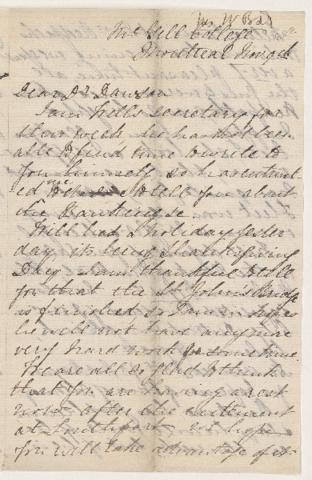 McGill College
Montreal Novr 9th
Dear Dr Dawson
I am Will's secretary for
this week he has not been
able to find time to write to
you himself so has entrust
ed me to tell you about
the
Will had a holiday yester
day, it being Thanksgiving
Day. I am thankful to tell
you that the St John's Bridge
is finished so I am in hopes
he will not have any more
very hard work for some time.
We are all so glad to think
that you are having a rest
now after the excitement
at Southport. I hope
you will take advantage of it